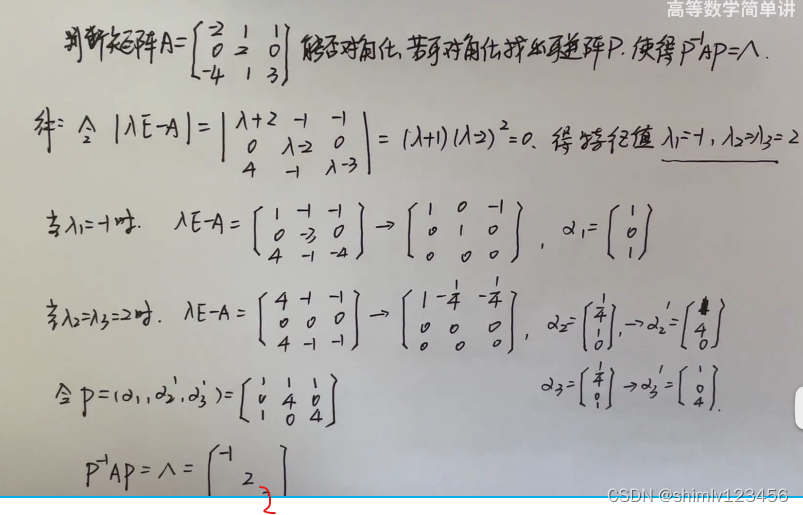 高等数学简单讲
判断矩阵A=[-2 1 1; 0 2 0; -4 1 3] 能否对角化, 若可对角化找出可逆阵P. 使得P⁻¹AP=Λ.
解: 令 |λE-A| = |λ+2 -1 -1; 0 λ-2 0; 4 -1 λ-3| = (λ+1)(λ-2)²=0. 得特征值 λ₁=-1, λ₂=λ₃=2
当λ₁=-1时. λE-A= [1 -1 -1; 0 -3 0; 4 -1 -4] → [1 0 -1; 0 1 0; 0 0 0], α₁=[1; 0; 1]
当λ₂=λ₃=2时. λE-A= [4 -1 -1; 0 0 0; 4 -1 -1] → [1 -1/4 -1/4; 0 0 0; 0 0 0], α₂=[1/4; 1; 0], → α₂'=[1; 4; 0]
α₃=[1/4; 0; 1] → α₃'=[1; 0; 4].
令 P=(α₁, α₂', α₃')= [1 1 1; 0 4 0; 1 0 4]
P⁻¹AP = Λ = [-1 2 2]
CSDN @shimlv123456